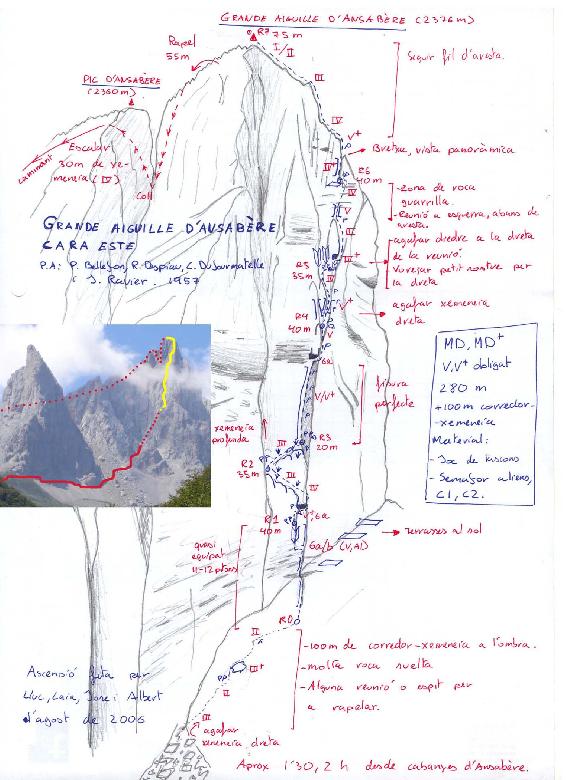 GRANDE AIGUILLE D'ANSABÈRE (2376m)
R7 75m
I/II
Rapel
55m
III
Seguir fil d'aresta.
PIC D'ANSABÈRE
(2360m)
IV
V+
Bretxa, vista panoràmica
Escalar
30m de xe-
meneia (IV)
caminant
Coll
IV+
R6
40m
-zona de roca
guarrilla.
-Reunió a esquerra, abans de
aresta.
V
GRANDE AIGUILLE D'ANSABÈRE
CARA ESTE
P.A: P. Bellefon, R. Despiau, C. Dufourmatelle
i J. Ravier. 1957
agafar diedre a la dreta
de la reunió.
Vorejar petit sostre per
la dreta
R5
35m
III+
V+
agafar xemeneia
dreta
R4
40m
V
6a
MD, MD+
V, V+ obligat
280 m
+100m corredor-
-xemeneia
Material:
- Joc de tascons
- Semàfor aliens,
C1, C2.
V/V+
fisura
perfecte
xemeneia
profonda
III
R3
20m
R2
35m
IV
R1
40m
V+, 6a
6a/b (V, A1)
terrasses al sol
quasi
equipat
11-12 pitons
R0
II
III+
II
-100m de corredor-xemeneia a l'ombra.
-molta roca suelta
-Alguna reunió o espit per
a rapelar.
Ascensió feta per
Lluc, Laia, Jose i Albert
d'agost de 2006
III
agafar
xemeneia dreta
Aprox 1'30, 2 h desde cabanyes d'Ansabère.